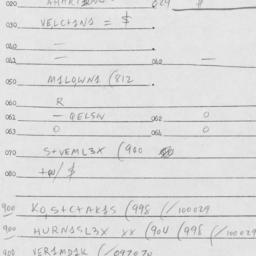 020
030 VELC+1N1 = $
040 —
041 — 042 —
050 M1LOWN1 (812
060 R
061 — QELSN 062 0
063 0 064 0
070 S+VEML3X (900
080 +W/ $
900 KO,S+C+AK1S (998 (/100029
900 HURN1SL3X XX (904 (998 (/10029
900 VER1MD1K (/097070